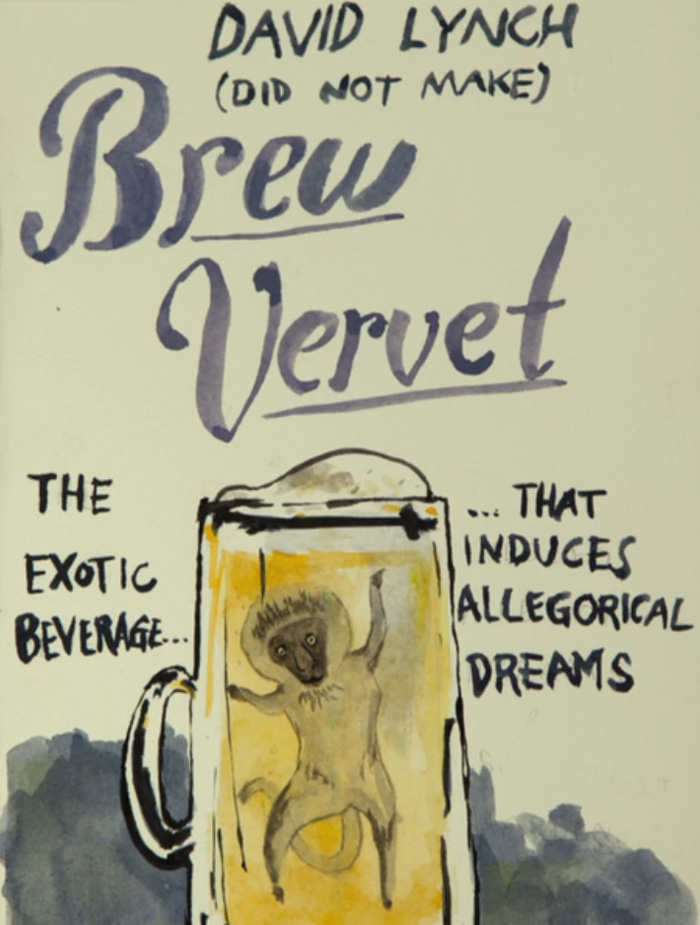 DAVID LYNCH
(DID NOT MAKE)
Brew
Vervet
THE
EXOTIC
BEVERAGE...
... THAT
INDUCES
ALLEGORICAL
DREAMS